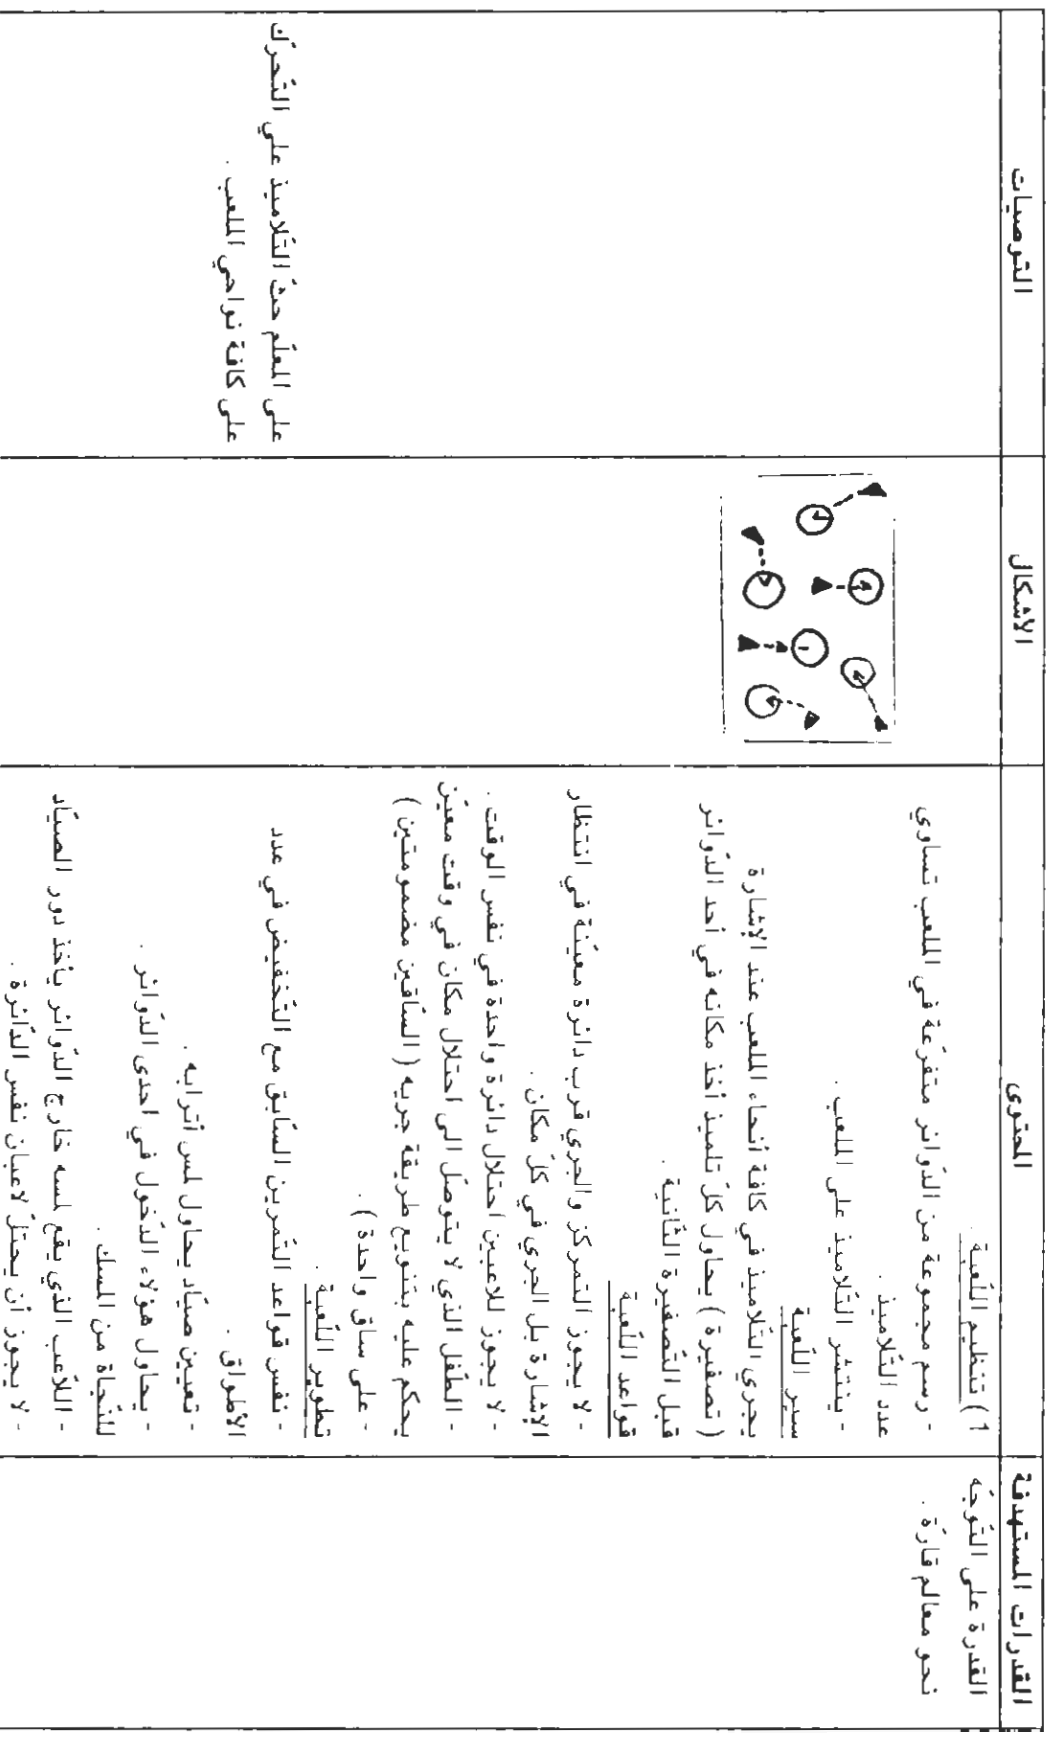 القدرات المستهدفة
القدرة على التّوجّه
نحو معالم قارّة .
المحتوى
1) تنظيم اللّعبة
- رسم مجموعة من الدّوائر متفرّعة في الملعب تساوي
عدد التّلاميذ .
- ينتشر التّلاميذ على الملعب .
سير اللّعبة
يجري التّلاميذ في كافة أنحاء الملعب عند الإشارة
( تصفيرة ) يحاول كلّ تلميذ أخذ مكانه في أحد الدّوائر
قبل التّصفيرة الثّانية .
قواعد اللّعبة
- لا يجوز التمركز والجري قرب دائرة معيّنة في انتظار
الإشارة بل الجري في كلّ مكان .
- لا يجوز للاعبين احتلال دائرة واحدة في نفس الوقت .
- الطّفل الذي لا يتوصّل الى احتلال مكان في وقت معيّن
يحكم عليه بتنويع طريقة جريه ( السّاقين مضمومتين )
- على ساق واحدة ) .
تطوير اللّعبة .
- نفس قواعد التّمرين السّابق مع التّخفيض في عدد
الأطواق .
- تعيين صيّاد يحاول لمس أترابه .
- يحاول هؤلاء الدّخول في احدى الدّوائر .
للنّجاة من المسك .
- اللاّعب الذي يقع لمسه خارج الدّوائر يأخذ دور الصيّاد
- لا يجوز أن يحتلّ لاعبان نفس الدّائرة .
الأشكال
التوصيات
على المعلّم حثّ التّلاميذ علي التّحرّك
على كافة نواحي الملعب .